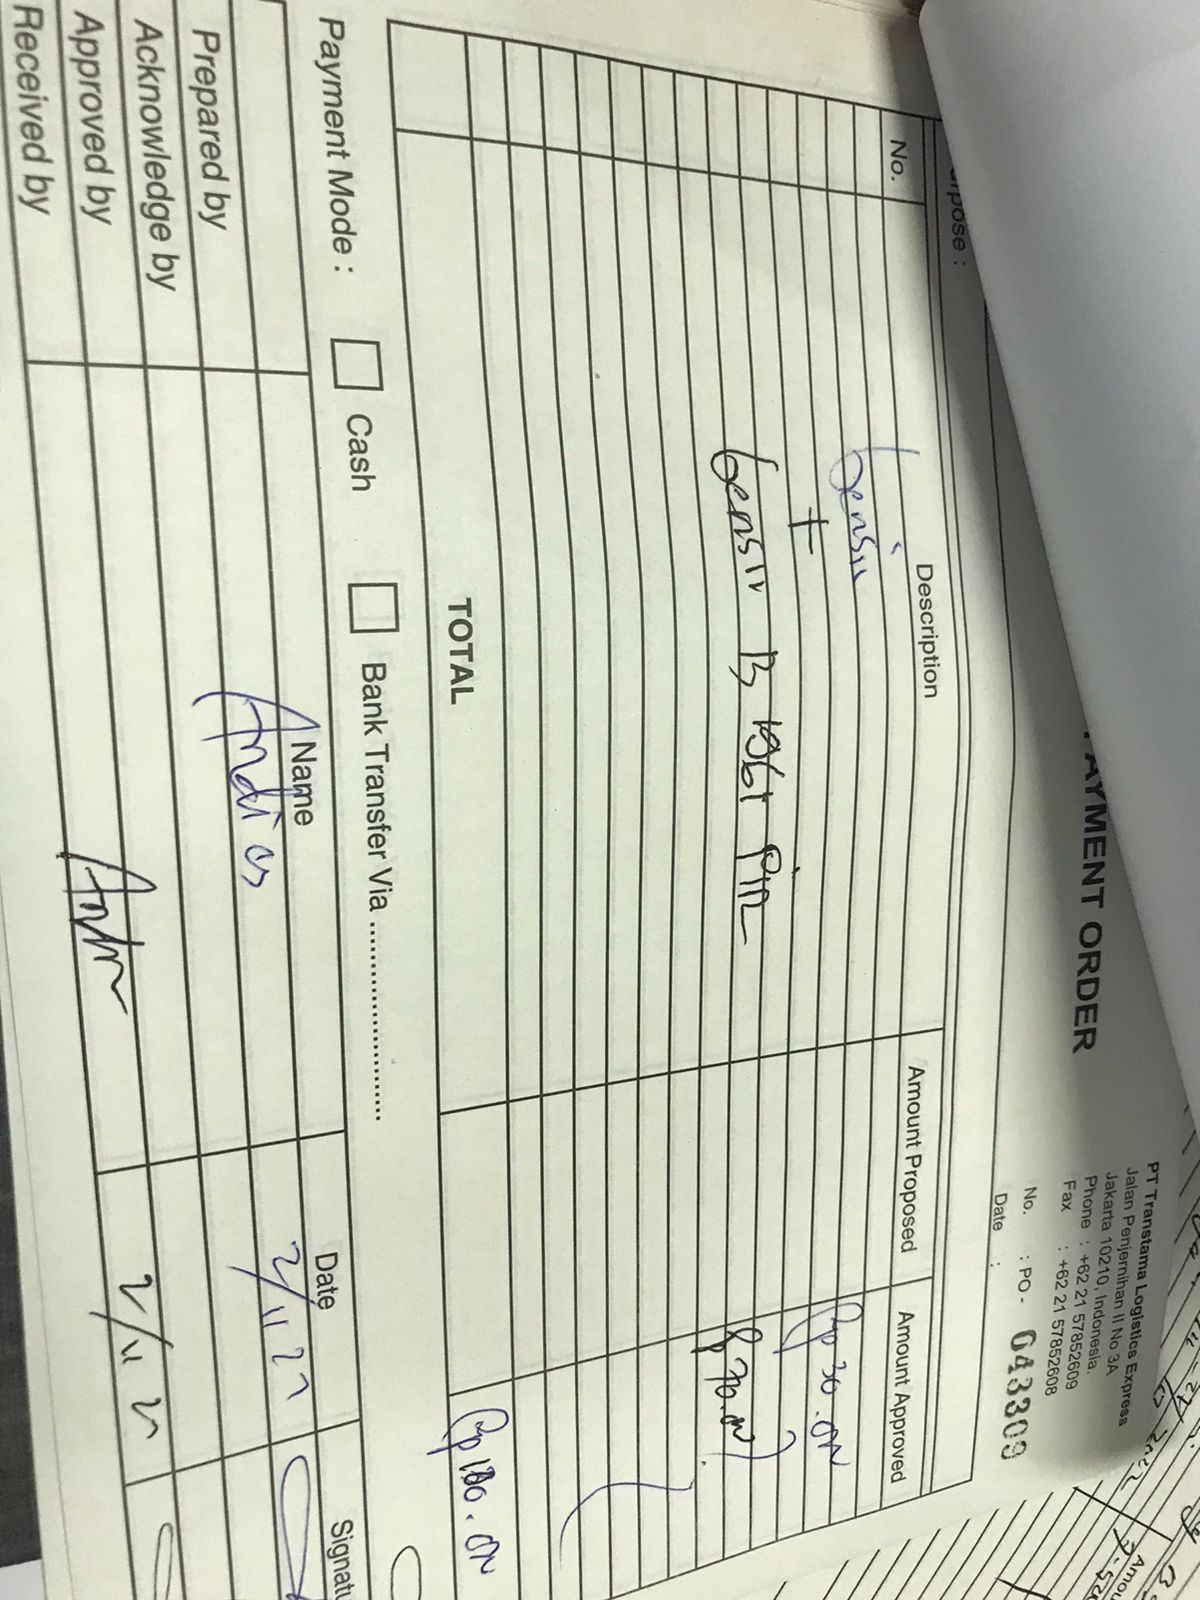 PAYMENT ORDER
PT Transtama Logistics Express
Jalan Penjernihan II No 3A
Jakarta 10210, Indonesia.
Phone : +62 21 57852609
Fax : +62 21 57852608
No. : PO - 043309
Date :
urpose :
No. Description Amount Proposed Amount Approved
Bensin Rp 30.000
+
Bensin B 1961 PIR
TOTAL
Payment Mode : Cash Bank Transfer Via ........................
Name Date Signatu
Prepared by Andi 2/11 22
Acknowledge by
Approved by 2/11 22
Received by